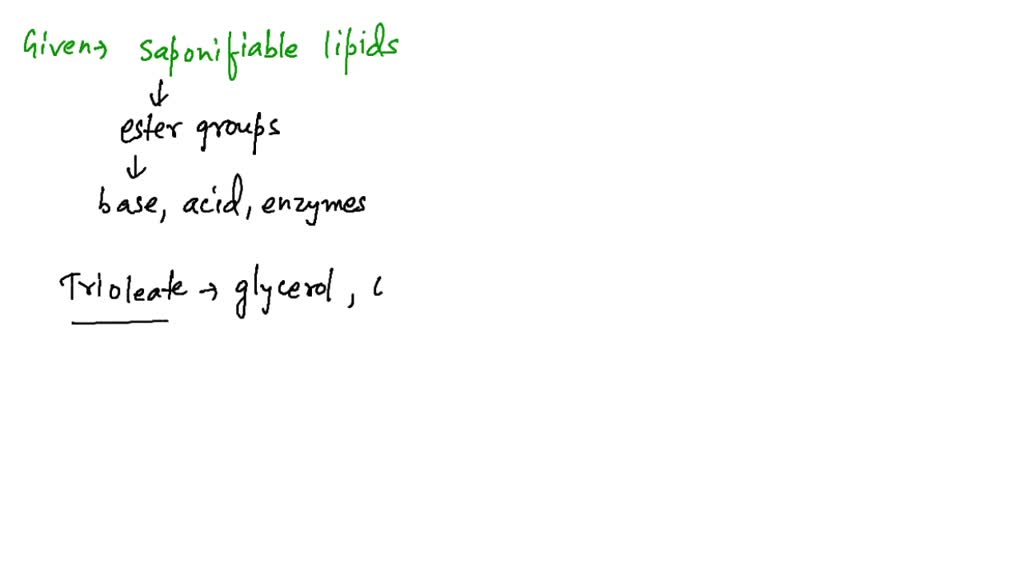 Given→ saponifiable lipids
↓
ester groups
↓
base, acid, enzymes
Trioleate → glycerol, c